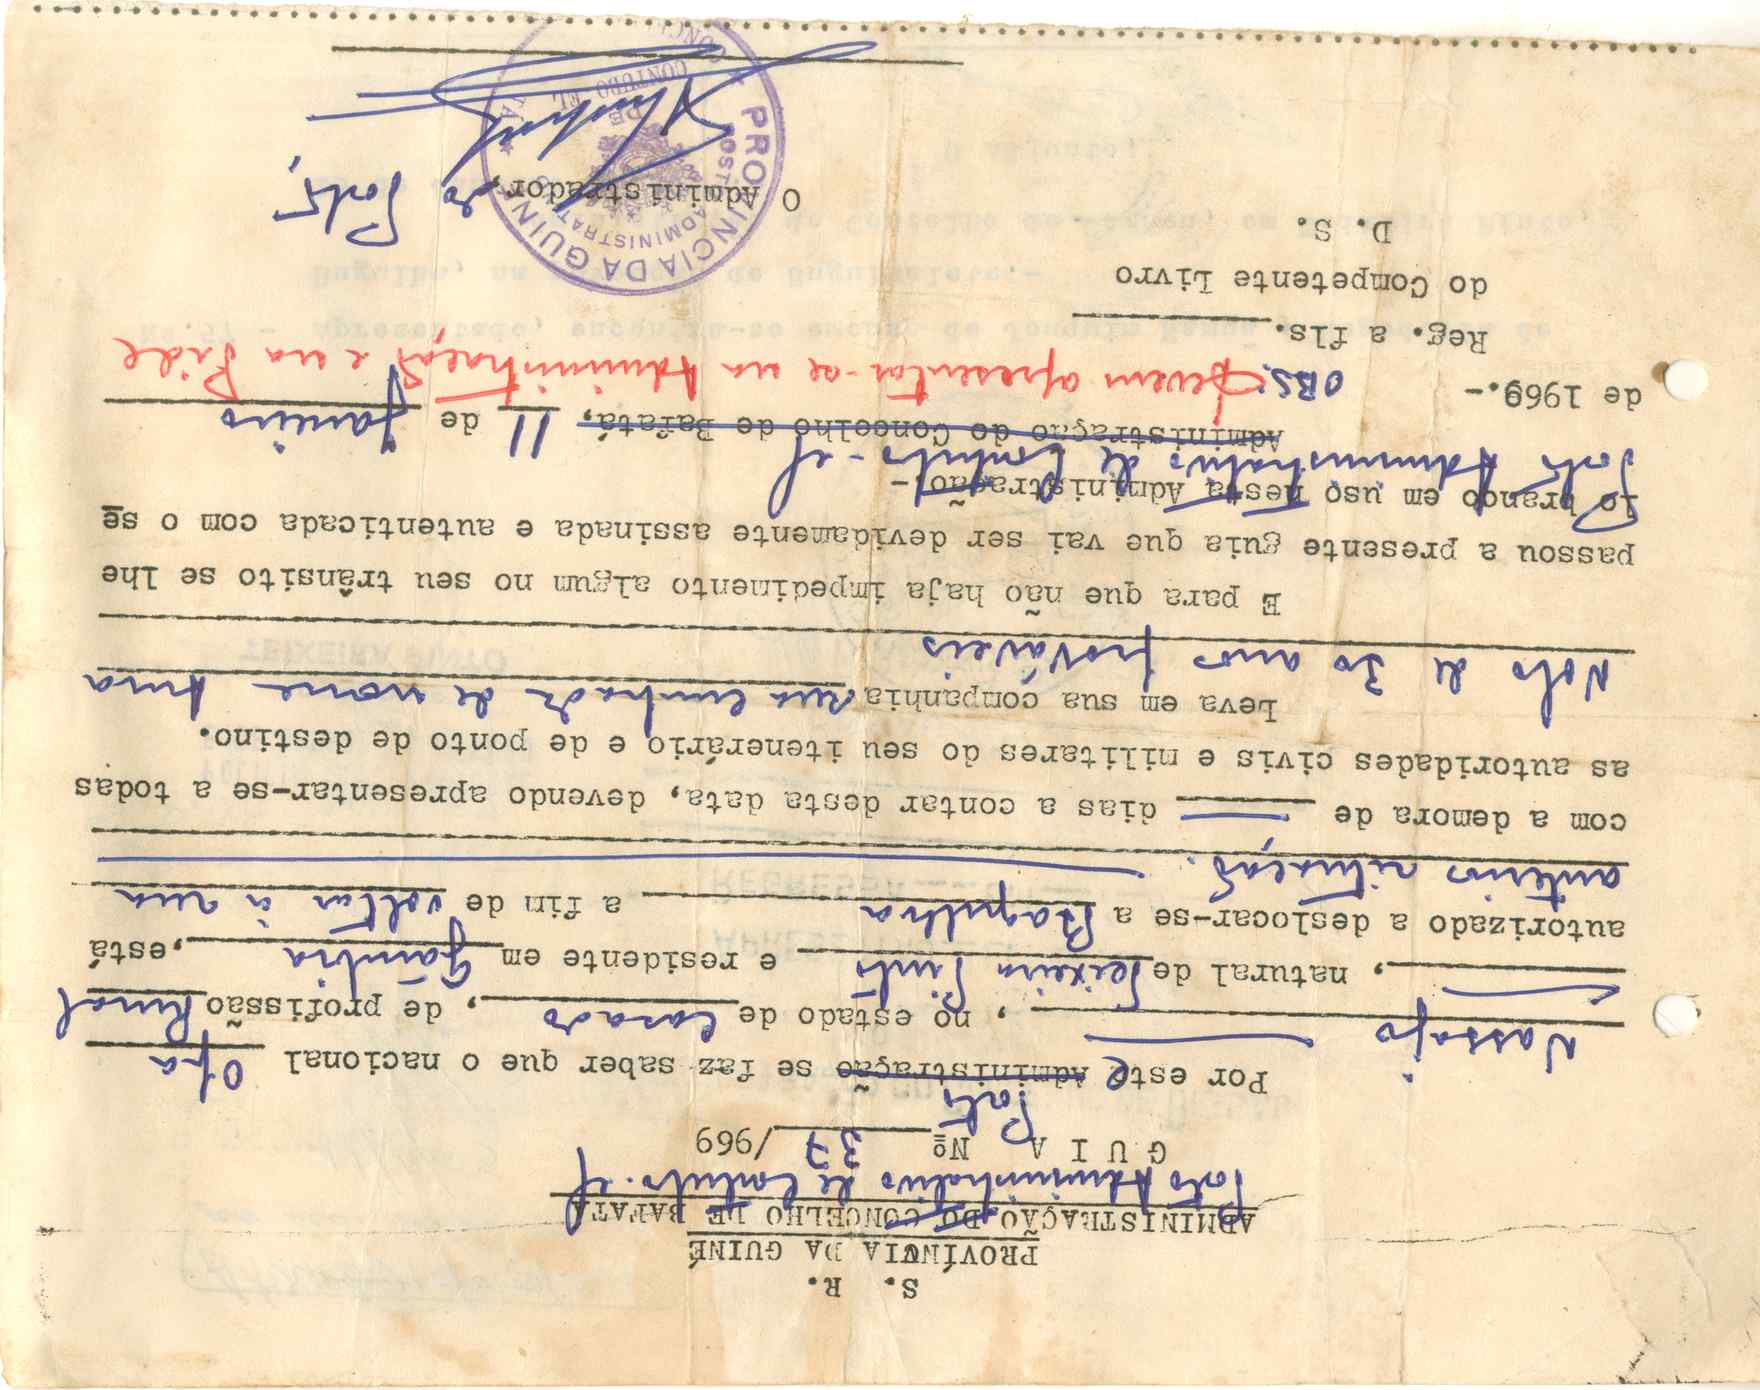 S. R.
PROVÍNCIA DA GUINÉ
ADMINISTRAÇÃO DO CONCELHO DE BAFATÁ
Posto Administrativo de Contubo-el
G U I A Nº 37 /969
Posto
Por este Administração se faz saber que o nacional Opa
Nassajo, no estado de Casado, de profissão Rural
, natural de Teixeira Pinto e residente em Gâmbia, está
autorizado a deslocar-se a Bagulha a fin de voltar à sua
anterior situação.
com a demora de dias a contar desta data, devendo apresentar-se a todas
as autoridades civis e militares do seu itenerário e de ponto de destino.
Leva em sua companhia sua cunhada de nome
de 30 anos prováveis
E para que não haja impedimento algum no seu trânsito se lhe
passou a presente guia que vai ser devidamente assinada e autenticada com o se
lo branco em uso nesta Administração.-
Posto Administrativo de Contubo-el
Administração do Concelho de Bafatá, 11 de Janeiro
de 1969.-
OBS: Devem apresentar-se na Administração e na Pide
Reg. a fls.
do Competente Livro
D. S.
O Administrador, do Posto,
PROVINCIA DA GUINÉ
POSTO ADMINISTRATIVO
DE
CONTUBO-EL